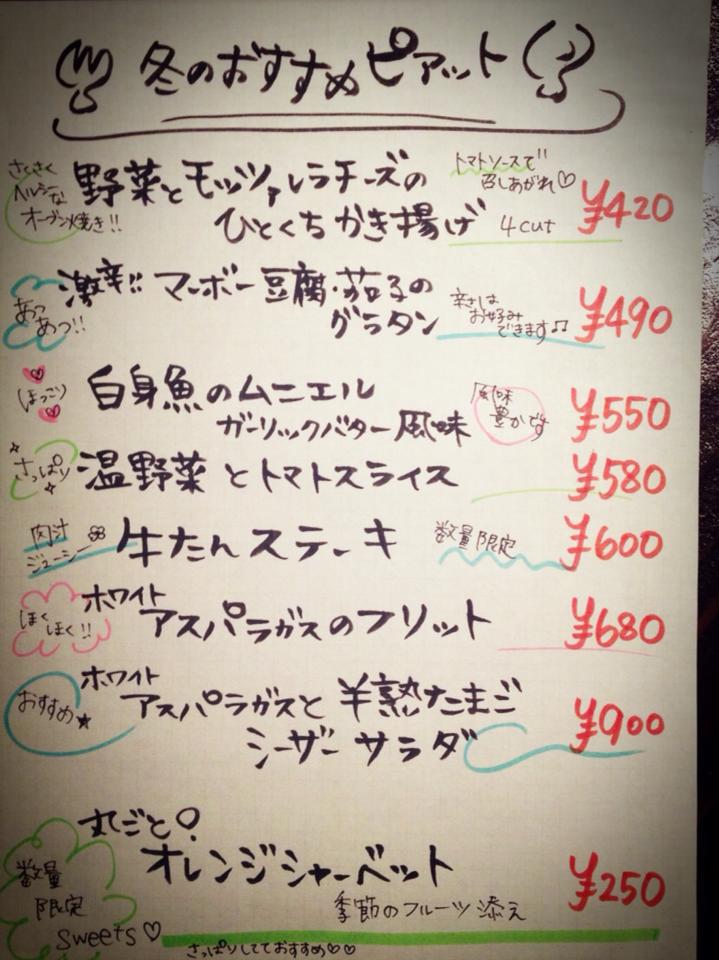 冬のおすすめピアット
さくさく
ヘルシーな
オーブン焼き!!
野菜とモッツァレラチーズの
ひとくちかき揚げ 4cut
トマトソースで
召しあがれ♡
¥420
あつ
あつ!!
激辛!! マーボー豆腐・茄子の
グラタン
辛さは
お好み
できます♫
¥490
ほっこり
白身魚のムニエル
ガーリックバター風味
風味
豊かです
¥550
さっぱり
温野菜とトマトスライス
¥580
肉汁
ジューシー
牛たんステーキ
数量限定
¥600
ほく
ほく!!
ホワイト
アスパラガスのフリット
¥680
おすすめ★
ホワイト
アスパラガスと半熟たまご
シーザーサラダ
¥900
まるごと!
オレンジシャーベット
季節のフルーツ添え
¥250
数量
限定
sweets♡
さっぱりしてておすすめ♡♡